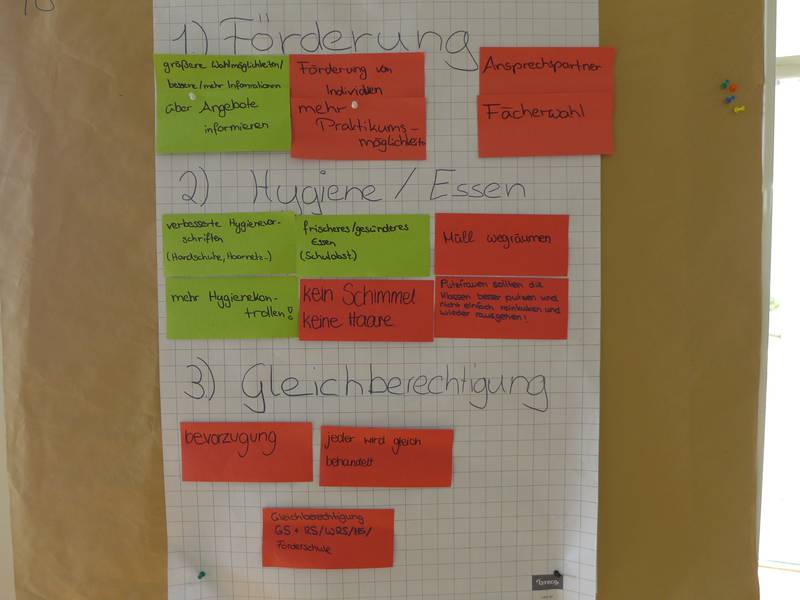 1) Förderung
größere Wahlmöglichkeiten/
bessere/mehr Informationen
über Angebote
informieren
Förderung von
Individuen
mehr
Praktikums-
möglichkeit
Ansprechspartner
Fächerwahl
2) Hygiene / Essen
verbesserte Hygienevor-
schriften
(Handschuhe, Haarnetz...)
frischeres/gesünderes
Essen
(Schulobst)
Müll wegräumen
mehr Hygienekon-
trollen!
kein Schimmel
keine Haare
Putzfrauen sollten die
Klassen besser putzen und
nicht einfach reinkucken und
wieder rausgehen!
3.) Gleichberechtigung
bevorzugung
jeder wird gleich
behandelt
Gleichberechtigung
GS + RS/WRS/HS/
Förderschule